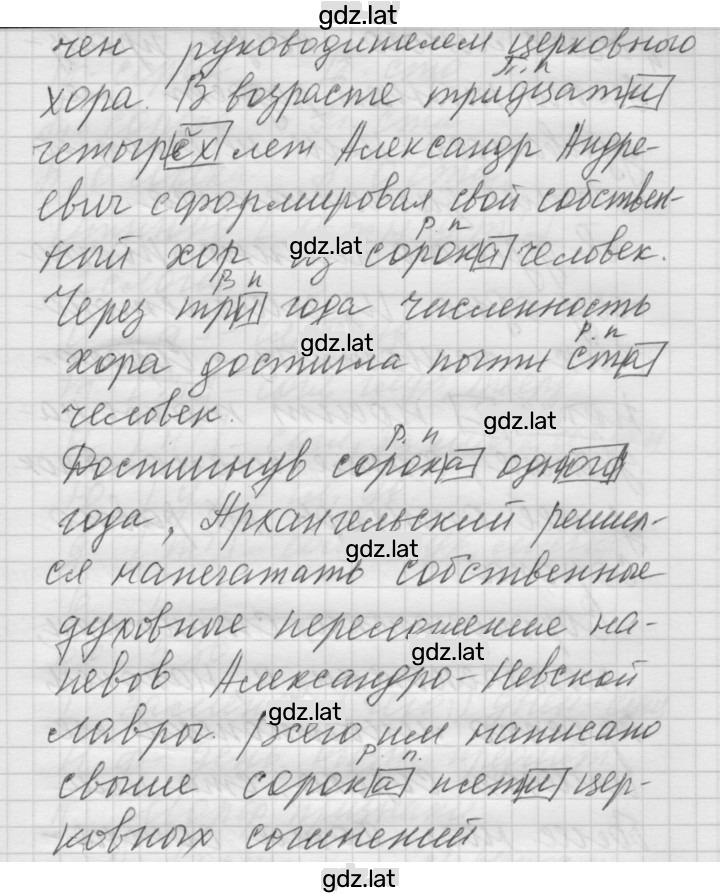 gdz.lat
чен руководителем церковного
П. п
хора. В возрасте тридцати
четырёх лет Александр Андре-
евич сформировал свой собствен-
Р. п
ный хор из сорока человек.
gdz.lat
В п
Через три года численность
gdz.lat
Р. п
хора достигла почти ста
человек.
gdz.lat
Р. п
Достигнув сорока одного
года, Архангельский решил-
gdz.lat
ся напечатать собственные
духовные переложение на-
gdz.lat
певов Александро-Невской
gdz.lat
лавры. Всего им написано
Р п.
свыше сорока пяти цер-
ковных сочинений
gdz.lat